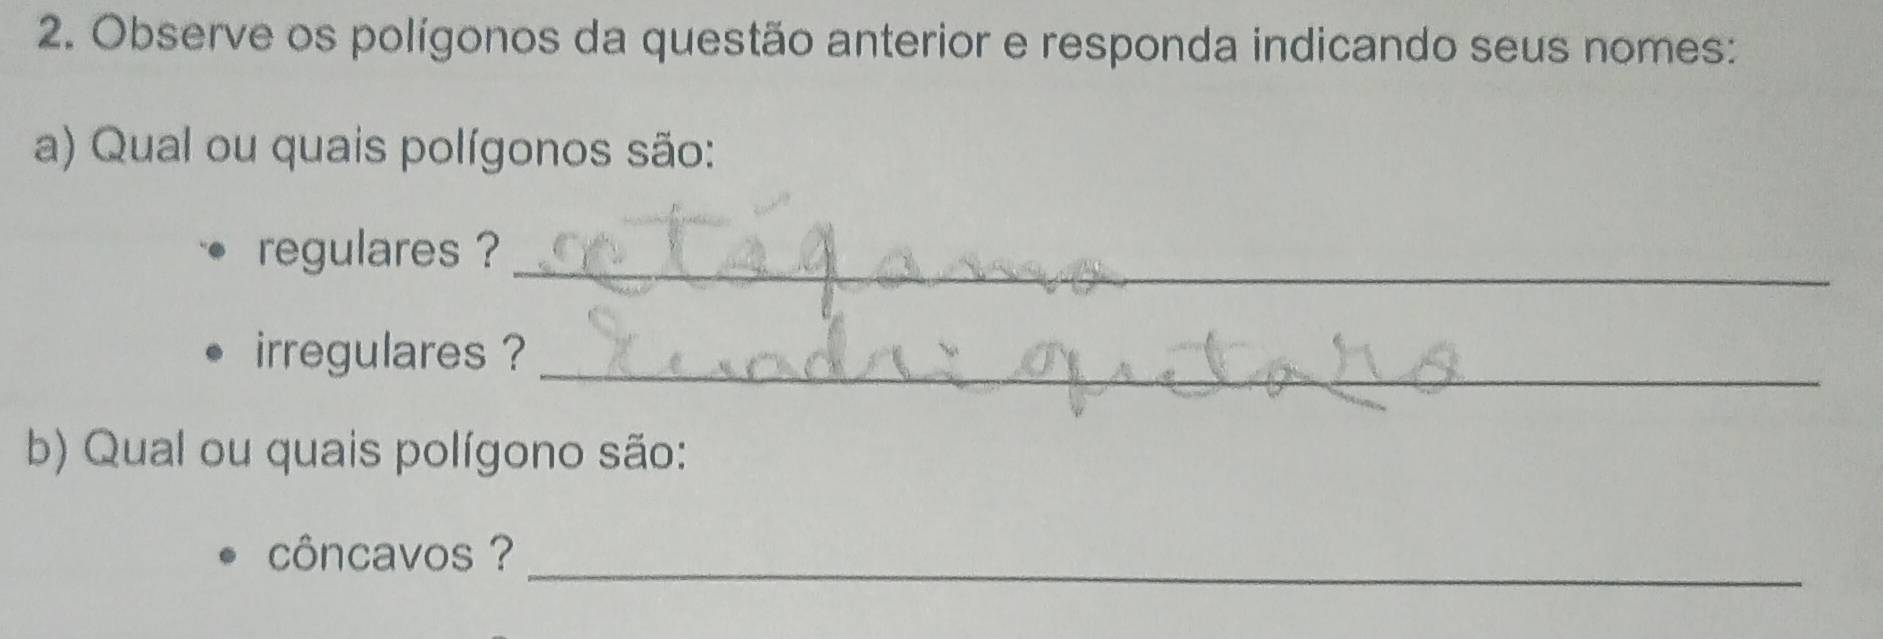 2. Observe os polígonos da questão anterior e responda indicando seus nomes:
a) Qual ou quais polígonos são:
• regulares ? setágamo
• irregulares ?
b) Qual ou quais polígono são:
• côncavos ?